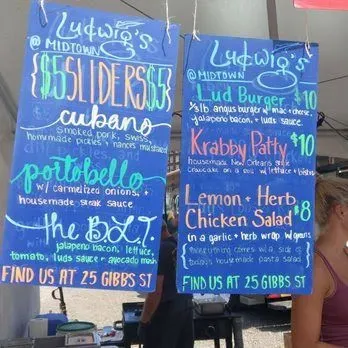 Ludwig's
@ MIDTOWN
{$5 SLIDERS $5}
cubano
smoked pork, swiss,
homemade pickles + nances mustard
portobello
w/ carmelized onions, +
housemade steak sauce
the B.L.T.
jalapeno bacon, lettuce,
tomato, luds sauce + avocado mash
FIND US AT 25 GIBBS ST
Ludwig's
@ MIDTOWN
Lud Burger $10
1/2 lb angus burger w/ mac + cheese,
jalapeno bacon, + luds sauce
Krabby Patty $10
housemade New Orleans style
crabcake on a roll w/ lettuce +
Lemon + Herb
Chicken Salad $8
in a garlic + herb wrap w/ greens
everything comes w/ a side of
today's housemade pasta salad
FIND US AT 25 GIBBS ST